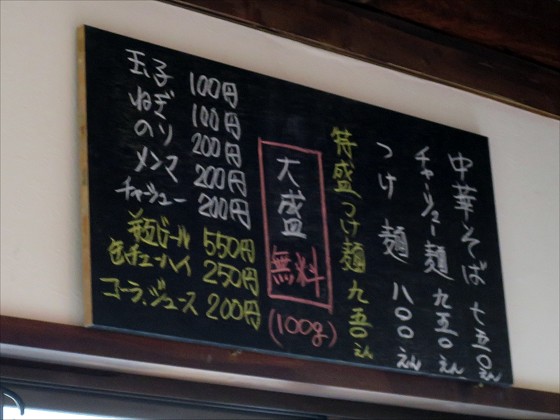 中華そば 七五〇えん
チャーシュー麺 九五〇えん
つけ麺 八〇〇えん
特盛つけ麺 九五〇えん
大盛無料
(100g)
玉子 100円
ねぎ 100円
のり 200円
メンマ 200円
チャーシュー 200円
瓶ビール 550円
缶チューハイ 250円
コーラ、ジュース 200円